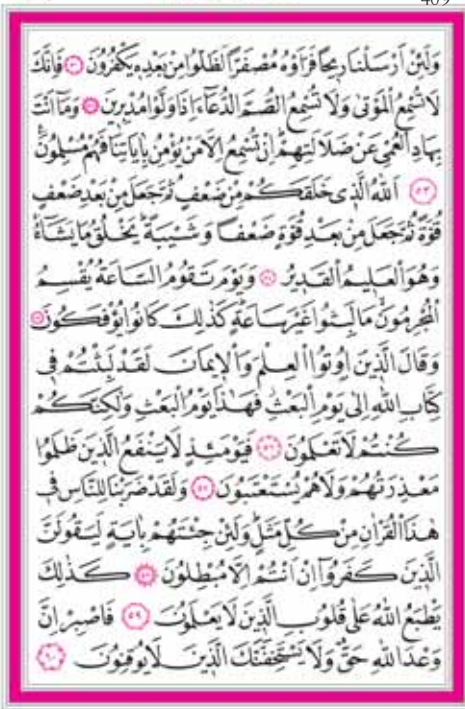 409
وَلَئِنْ اَرْسَلْنَا رِيحًا فَرَاَوْهُ مُصْفَرًّا لَظَلُّوا مِنْ بَعْدِهِ يَكْفُرُونَ ﴿٥١﴾ فَاِنَّكَ
لَا تُسْمِعُ الْمَوْتٰى وَلَا تُسْمِعُ الصُّمَّ الدُّعَٓاءَ اِذَا وَلَّوْا مُدْبِرِينَ ﴿٥٢﴾ وَمَٓا اَنْتَ
بِهَادِ الْعُمْيِ عَنْ ضَلَالَتِهِمْ اِنْ تُسْمِعُ اِلَّا مَنْ يُؤْمِنُ بِاٰيَاتِنَا فَهُمْ مُسْلِمُونَ
﴿٥٣﴾ اَللّٰهُ الَّذِى خَلَقَكُمْ مِنْ ضَعْفٍ ثُمَّ جَعَلَ مِنْ بَعْدِ ضَعْفٍ
قُوَّةً ثُمَّ جَعَلَ مِنْ بَعْدِ قُوَّةٍ ضَعْفًا وَشَيْبَةً يَخْلُقُ مَا يَشَٓاءُ
وَهُوَ الْعَلِيمُ الْقَدِيرُ ﴿٥٤﴾ وَيَوْمَ تَقُومُ السَّاعَةُ يُقْسِمُ
الْمُجْرِمُونَ مَا لَبِثُوا غَيْرَ سَاعَةٍ كَذٰلِكَ كَانُوا يُؤْفَكُونَ ﴿٥٥﴾
وَقَالَ الَّذِينَ اُوتُوا الْعِلْمَ وَالْاِيمَانَ لَقَدْ لَبِثْتُمْ فِى
كِتَابِ اللّٰهِ اِلٰى يَوْمِ الْبَعْثِ فَهٰذَا يَوْمُ الْبَعْثِ وَلٰكِنَّكُمْ
كُنْتُمْ لَا تَعْلَمُونَ ﴿٥٦﴾ فَيَوْمَئِذٍ لَا يَنْفَعُ الَّذِينَ ظَلَمُوا
مَعْذِرَتُهُمْ وَلَا هُمْ يُسْتَعْتَبُونَ ﴿٥٧﴾ وَلَقَدْ ضَرَبْنَا لِلنَّاسِ فِى
هٰذَا الْقُرْاٰنِ مِنْ كُلِّ مَثَلٍ وَلَئِنْ جِئْتَهُمْ بِاٰيَةٍ لَيَقُولَنَّ
الَّذِينَ كَفَرُٓوا اِنْ اَنْتُمْ اِلَّا مُبْطِلُونَ ﴿٥٨﴾ كَذٰلِكَ
يَطْبَعُ اللّٰهُ عَلٰى قُلُوبِ الَّذِينَ لَا يَعْلَمُونَ ﴿٥٩﴾ فَاصْبِرْ اِنَّ
وَعْدَ اللّٰهِ حَقٌّ وَلَا يَسْتَخِفَّنَّكَ الَّذِينَ لَا يُوقِنُونَ ﴿٦٠﴾